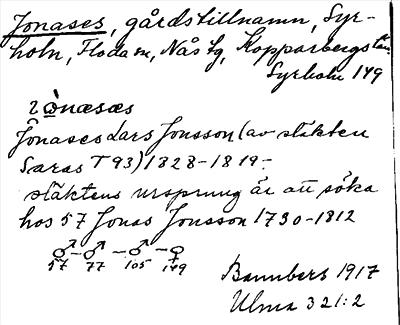 Jonases, gårdstillnamn, Syr-
holn, Floda sn, Nås tg, Kopparbergs län
Syrholn 149
Jonases Lars Jonsson (av släkten
Saras T 93) 1828-1819-
släktens ursprung är att söka
hos 57 Jonas Jonsson 1730-1812
♂ - ♂ - ♂ - ♀
57 77 105 149
Bannbers 1917
Ulma 321:2